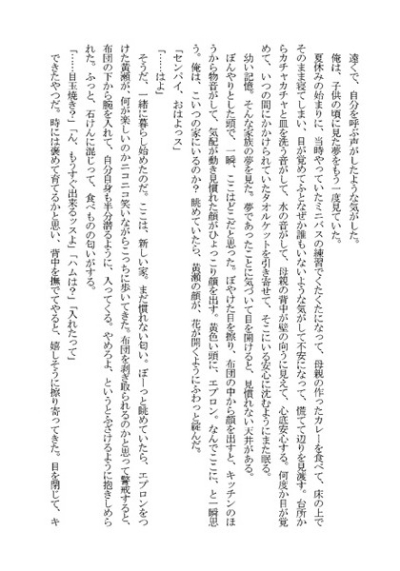 遠くで、自分を呼ぶ声がしたような気がした。
　俺は、子供の頃に見た夢をもう一度見ていた。
　夏休みの始まりに、当時やっていたミニバスの練習でくたくたになって、母親の作ったカレーを食べて、床の上で
そのまま寝てしまい、目が覚めてふとなぜか誰もいないような気がして不安になって、慌てて辺りを見渡す。台所か
らカチャカチャと皿を洗う音がして、水の音がして、母親の背中が壁の向うに見えて、心底安心する。何度か目が覚
めて、いつの間にかかけられていたタオルケットを引き寄せて。そこにいる安心に沈むようにまた眠る。
　幼い記憶。そんな家族の夢を見た。夢であったことに気づいて目を開けると、見慣れない天井がある。
　ぼんやりとした頭で、一瞬、ここはどこだと思った。ぼやけた目を擦り、布団の中から顔を出すと、キッチンのほ
うから物音がして、気配が動き見慣れた顔がひょっこり顔を出す。黄色い頭に、エプロン。なんでここに、と一瞬思
う。俺は、こいつの家にいるのか？　眺めていたら、黄瀬の顔が、花が開くようにふわっと綻んだ。
「センパイ、おはよっス」
「……はよ」
　そうだ、一緒に暮らし始めたのだ。ここは、新しい家。まだ慣れない匂い。ぼーっと眺めていたら、エプロンをつ
けた黄瀬が、何が楽しいのかニコニコ笑いながらこっちに歩いてきた。布団を剥ぎ取られるのかと思って警戒すると、
布団の下から腕を入れて、自分自身も半分潜るように、入ってくる。やめろよ、というとふざけるように抱きしめら
れた。ふっと、石けんに混じって、食べものの匂いがする。
「……目玉焼き？」「ん、もうすぐ出来るッスよ」「ハムは？」「入れたって」
　できたやつだ。時には褒めて育てるかと思い、背中を撫でてやると、嬉しそうに擦り寄ってきた。目を閉じて、キ